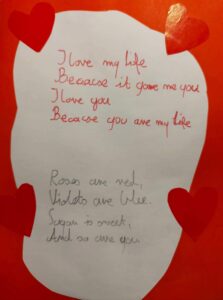 I love my life
Because it gave me you
I love you
Because you are my life
Roses are red,
Violets are blue.
Sugar is sweet,
And so are you